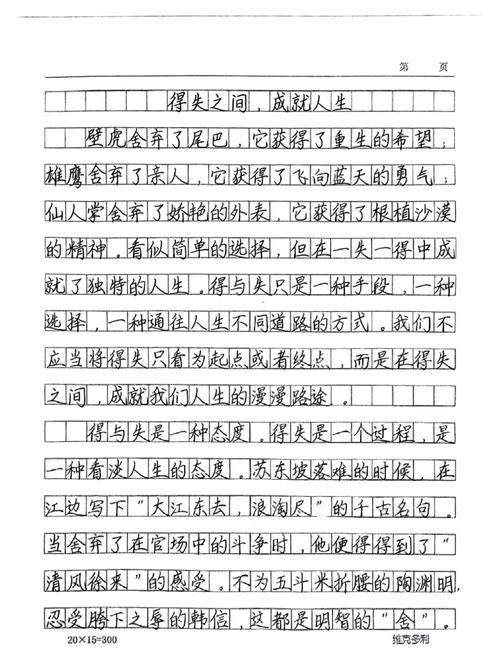 第 页
得失之间，成就人生
壁虎舍弃了尾巴，它获得了重生的希望；
雄鹰舍弃了亲人，它获得了飞向蓝天的勇气；
仙人掌舍弃了娇艳的外表，它获得了根植沙漠
的精神。看似简单的选择，但在一失一得中成
就了独特的人生。得与失只是一种手段，一种
选择，一种通往人生不同道路的方式。我们不
应当将得失只看为起点或者终点，而是在得失
之间，成就我们人生的漫漫路途。
得与失是一种态度。得失是一个过程，是
一种看淡人生的态度。苏东坡落难的时候，在
江边写下“大江东去，浪淘尽”的千古名句。
当舍弃了在官场中的斗争时，他便得得到了“
清风徐来”的感受。不为五斗米折腰的陶渊明，
忍受胯下之辱的韩信，这都是明智的“舍”。
20×15=300 维克多利